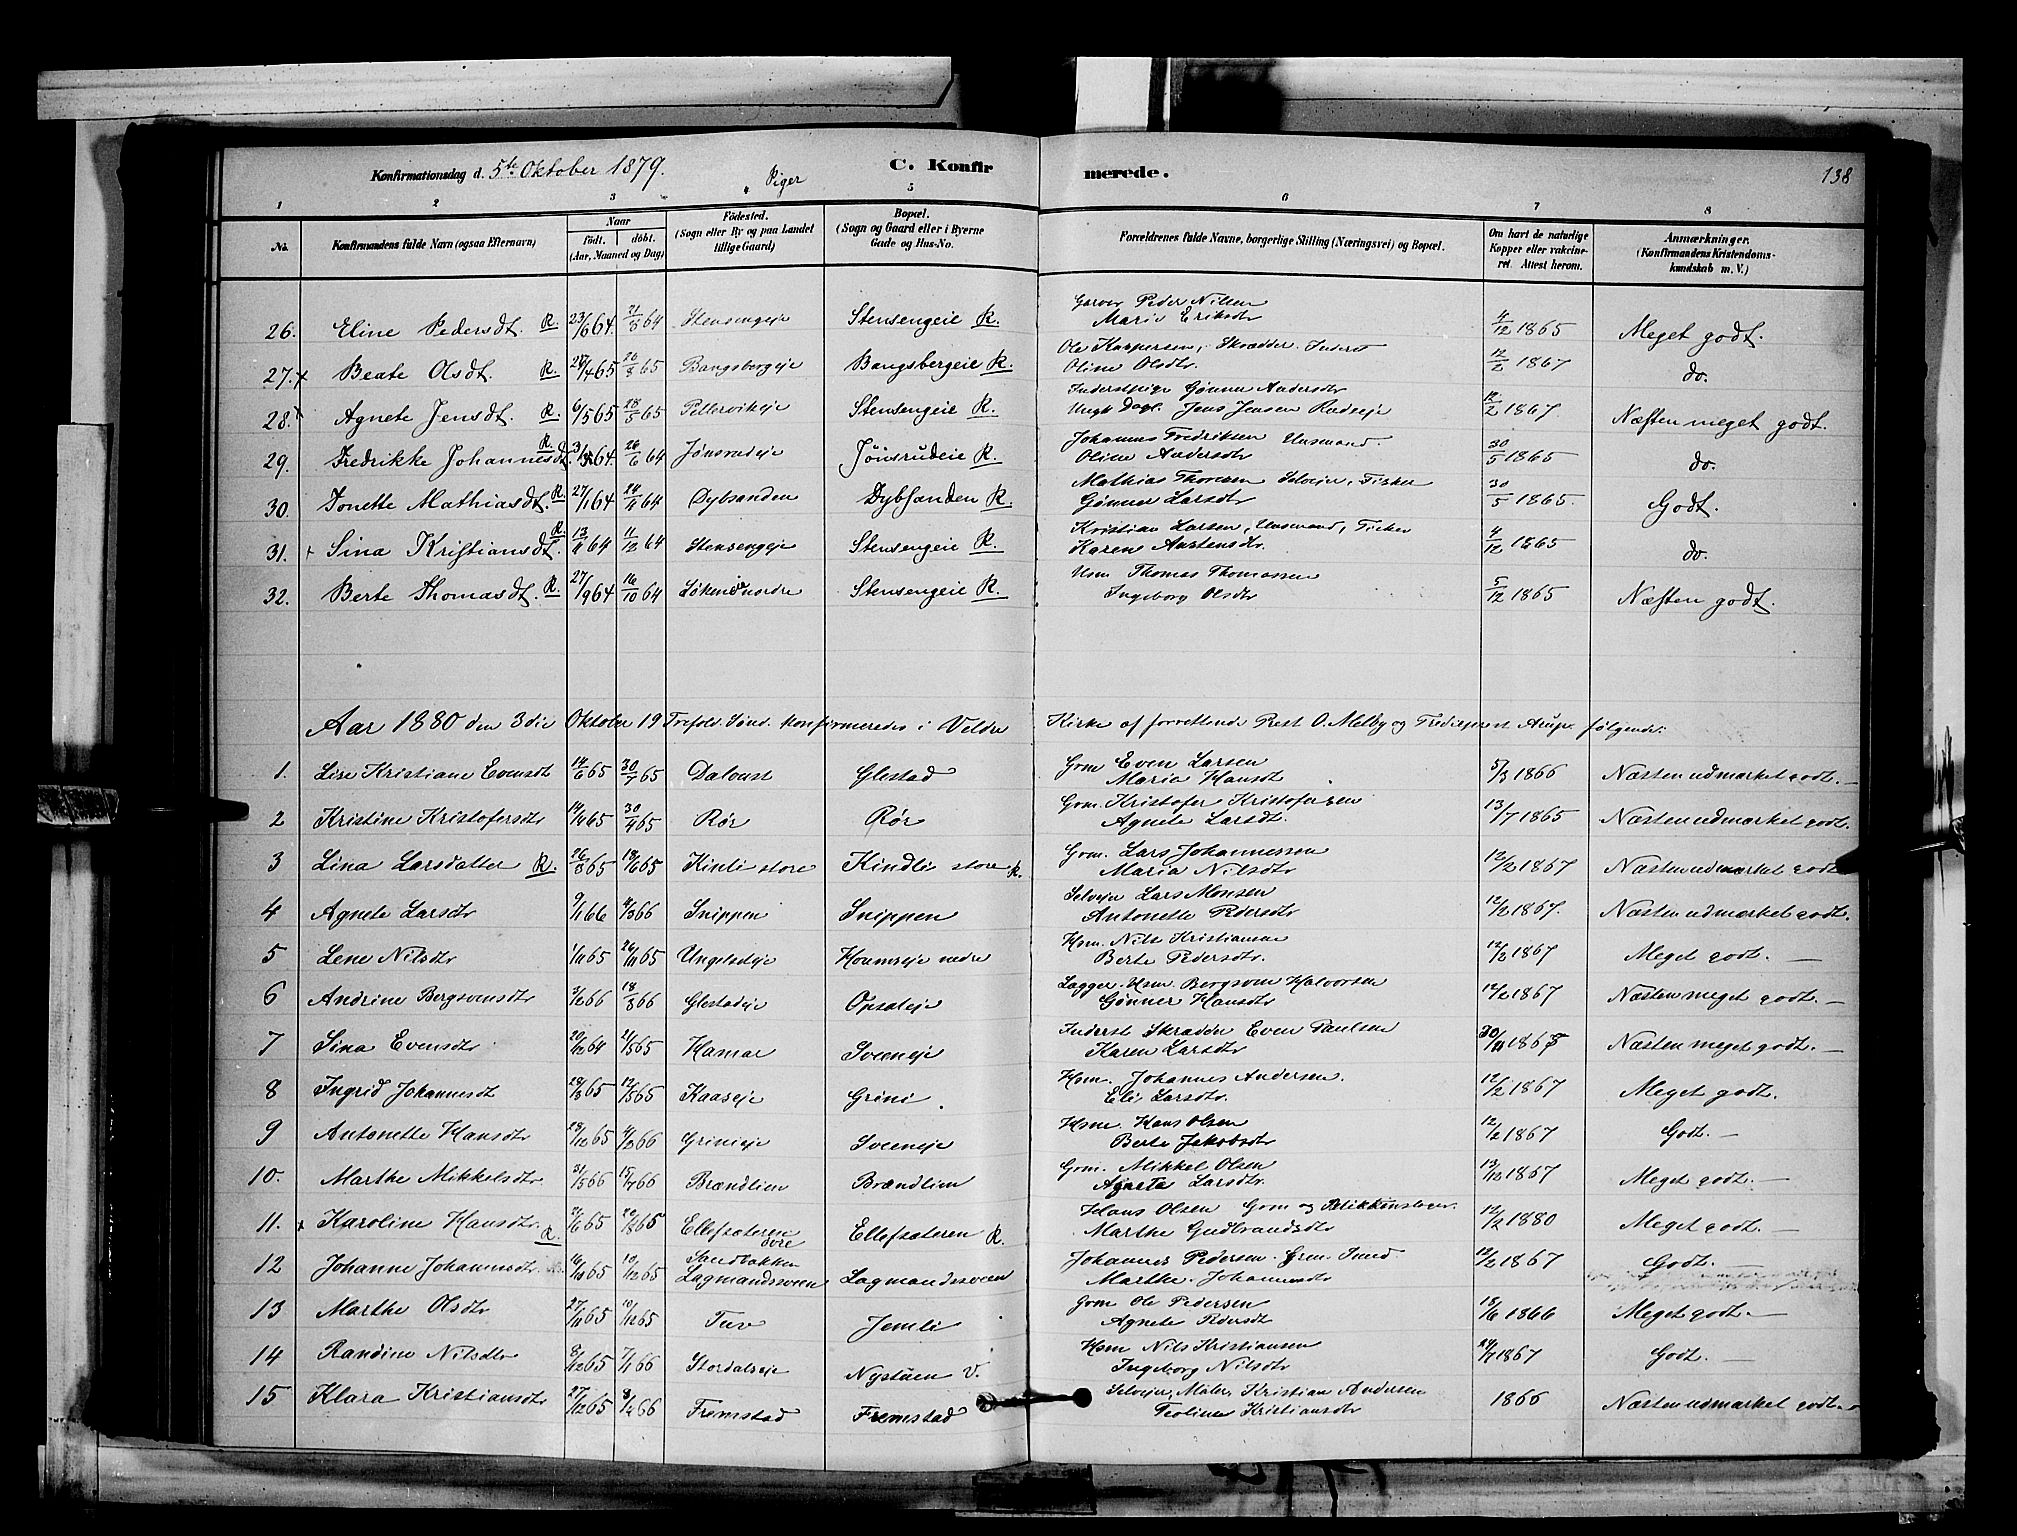 Konfirmationsdag d. 5te Oktober 1879. Piger C. Konfirmerede. 138
1 2 3 5 6 7 8
No. Konfirmandens fulde Navn (ogsaa Efternavn) Naar født. døbt. (Aar, Maaned og Dag) Fødested. (Sogn eller By og paa Landet tillige Gaard) Bopæl. (Sogn og Gaard eller i Byerne Gade og Hus-No. Forældrenes fulde Navne, borgerlige Stilling (Næringsvei) og Bopæl. Om havt de naturlige Kopper eller vakcineret. Attest herom. Anmærkninger. (Konfirmandens Kristendomskundskab m. V.)
26. Eline Pedersdt. R. 23/6 64 21/8 64 Stensengeje Stensengeie R. Garver Peder Nilsen Marie Eriksdtr 4/12 1865 Meget godt.
27. x Beate Olsdt. R. /4 65 26/3 65 Bangsbergeje Bangsbergeie R. Ole Kaspersen, Skrædder Inderst Oline Olsdtr. 12/2 1867 do.
28. x Agnete Jensdt. R. 6/5 65 28/5 65 Pellervikeje Stensengeie R. Inderstpige Gønner Andersdtr Ungk Dagl. Jens Jensen Rudseje 12/2 1867. Næsten meget godt.
29. Fredrikke Johannesdt. R. 64 26/6 64 Jønsrudeje Jönsrudeie R. Johannes Fredriksen Husmand. Oline Andersdtr 30/5 1865 do.
30. Jonette Mathiasdt. R. 27/1 64 24/4 64 Dybsanden Dybsanden R. Mathias Thoresen Selveier, Fisker Gønner Larsdt 30/5 1865. Godt.
31. x Sina Kristiansdt. R. 13/11 64 11/12 64 Stensengeje Stensengeie R. Kristian Larsen, Husmand, Fisker Karen Austensdtr. 4/12 1865 do.
32. Berte Thomasdt. R. 27/9 64 16/10 64 Løken nordre Stensengeie R. Hsm Thomas Thomassen Ingeborg Olsdtr 5/12 1865 Næsten godt.
Aar 1880 den 3die Oktober 19 Trefold. Sønd. konfirmeredes i Veldre Kirke af forrettende Prest O. Melby og Trediepræst Arup følgende:
1. Lise Kristiane Evensdt 14/6 65 30/7 65 Daloust Glestad Gom Even Larsen Maria Hansdt 5/3 1866 Næsten udmærket godt. —
2 Kristine Kristofersdtr 14/4 65 30/4 65 Rør Rør Gom. Kristofer Kristofersen Agnete Larsdt. 13/7 1865 Næsten udmærket godt.
3 Lina Larsdatter R. 26/3 65 18/6 65 Kinli store Kindli store R. Gom. Lars Johannessen Maria Nilsdtr 12/2 1867 Næsten udmærket godt
4 Agnete Larsdtr 9/1 66 4/3 66 Snippen Snippen Selvejer Lars Monsen Antonette Pedersdtr 12/2 1867. Næsten udmærket godt.
5 Lene Nilsdtr 1/11 65 26/11 65 Ungelsdeje Houmseje nedre Hsm. Nils Kristiansen Berte Pedersdtr. 12/2 1867 Meget godt. —
6 Andrine Bergsvensdtr 3/2 66 18/3 66 Glestadeje Opsaleje Lægger. Hsm. Bergsven Halvorsen Gønner Hansdtr 12/2 1867 Næsten meget godt. —
7 Sina Evensdtr 20/12 64 21/5 65 Hamar Sveeneje Inderst Skrædder Even Paulsen Karen Larsdtr 30/11 186 Næsten meget godt. —
8 Ingrid Johannesdt 28/3 65 12/5 65 Kaaseje Grini Hsm. Johannes Andersen. Eli Larsdtr. 12/2 1867 Meget godt.
9 Antonette Hansdtr 28/12 65 4/2 66 Grinieje Sveeneje Hsm. Hans Olsen Berte Jakobsdtr 12/2 1867 Godt. —
10. Marthe Mikkelsdtr 31/5 66 15/7 66 Brændlien Brændlien Gom. Mikkel Olsen Agneta Larsdtr. 13/12 1867 Meget godt. —
11. x Karoline Hansdtr. R. 21/6 65 20/8 65 Ellefsæteren øvre Ellefsæteren R. Hans Olsen Gom og Marthe Gudbrandsdtr 12/2 1880 Meget godt. —
12 Johanne Johannesdtr 16/10 65 10/12 65 Sandbakken Lagmandssveen Lagmandssveen Johannes Pedersen Smed Marthe Johannesdtr 12/2 1867 Godt. —
13 Marthe Olsdtr 27/11 65 10/12 65 Tuv Jemli Gom Ole Pedersen Agnete Pedersdt 18/6 1866 Meget godt. —
14 Randine Nilsdtr 8/12 65 7/1 66 Stordalseje Nystuen V. Hsm Nils Kristiansen Ingeborg Nilsdtr 24/7 1867 Godt. —
15 Klara Kristiansdtr 27/12 65 8/4 66 Fremstad Fremstad Selvejer, Maler, Kristian Andersen Teoline Kristiansdtr 1866 Næsten udmærket godt.